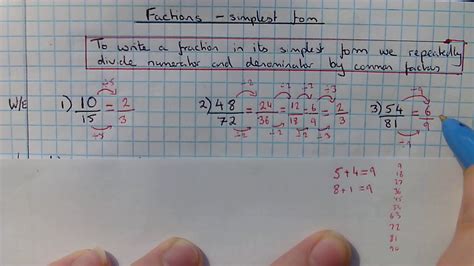 Fractions - simplest form
To write a fraction in its simplest form we repeatedly
divide numerator and denominator by common factors
W/E 1) 10/15 = 2/3 ÷5 ÷5
2) 48/72 = 24/36 = 12/18 = 6/9 = 2/3 ÷2 ÷2 ÷2 ÷3 ÷2 ÷2 ÷2 ÷3
3) 54/81 = 6/9 ÷9 ÷9
5+4=9
8+1=9
9
18
27
36
45
54
63
72
81
90